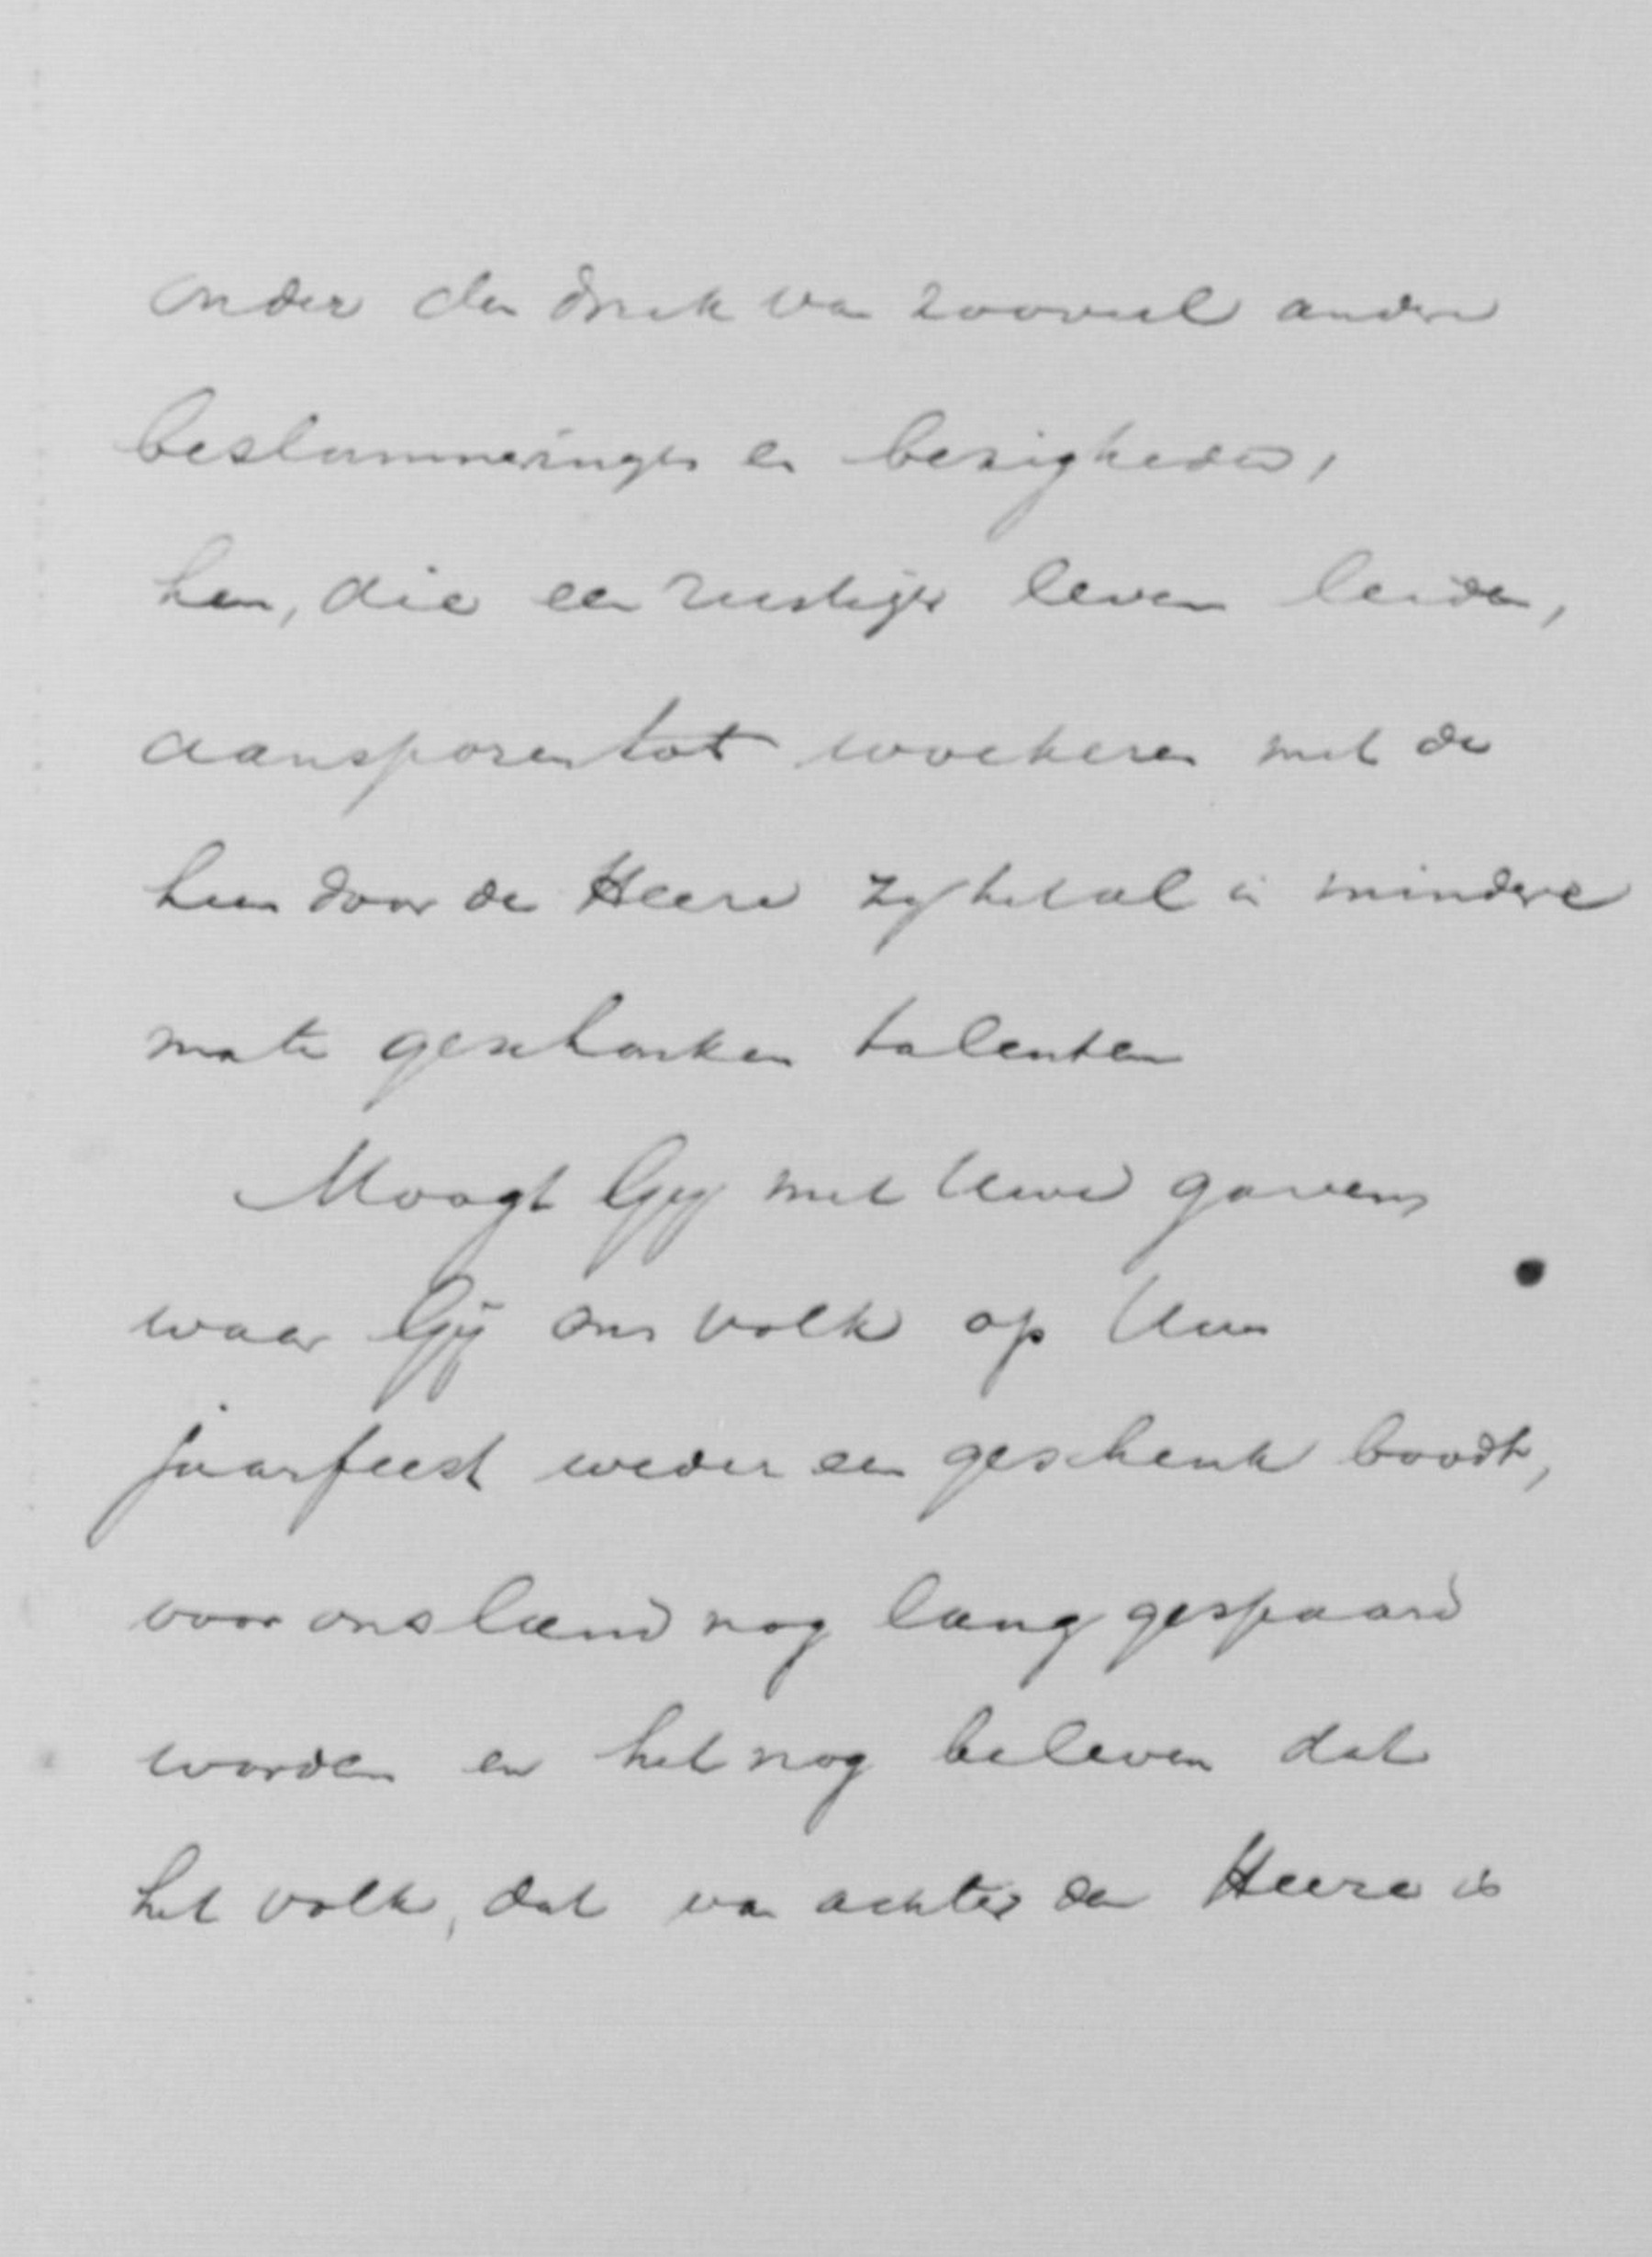 onder den druk van zooveel andere
beslommeringen en bezigheden,
hen, die een rustiger leven leiden,
aansporen tot woekeren met de
hun door de Heere zij het al in mindere
mate geschonken talenten
Moogt Gij met Uwe gaven,
waar Gij ons volk op Uw
jaarfeest weder een geschenk boodt,
voor ons land nog lang gespaard
worden en het nog beleven dat
het volk, dat van achter den Heere is